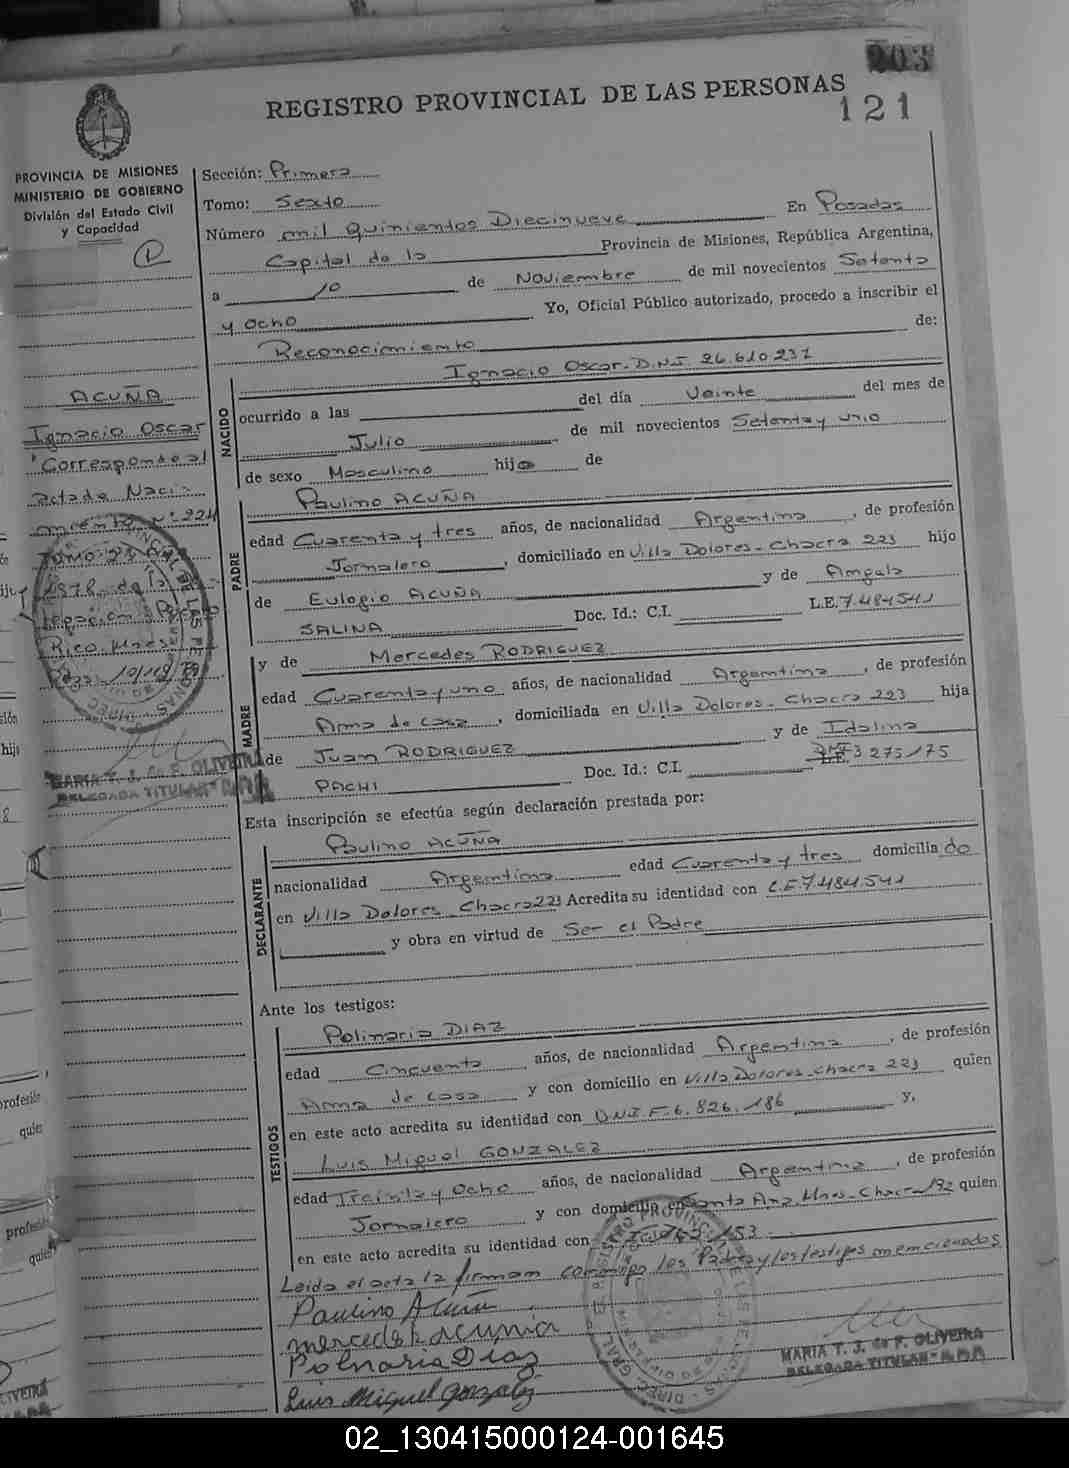 203
121
REGISTRO PROVINCIAL DE LAS PERSONAS
PROVINCIA DE MISIONES
MINISTERIO DE GOBIERNO
División del Estado Civil
y Capacidad
ACUÑA
Ignacio Oscar
Corresponde al
acta de Naci-
miento Nº 224
1978 de la
Rico Mnes
MARIA T. J. de F. OLIVEIRA
DELEGADA TITULAR
Sección: Primera
Tomo: Sexto
Número mil Quinientos Diecinueve En Posadas
Capital de la Provincia de Misiones, República Argentina,
a 10 de Noviembre de mil novecientos Setenta
y Ocho Yo, Oficial Público autorizado, procedo a inscribir el
Reconocimiento de:
Ignacio Oscar. D.N.I. 26.610.231
NACIDO
ocurrido a las del día Veinte del mes de
Julio de mil novecientos Setenta y uno
de sexo Masculino hijo de
PADRE
Paulino ACUÑA
edad Cuarenta y tres años, de nacionalidad Argentina, de profesión
Jornalero, domiciliado en Villa Dolores-Chacra 223 hijo
de Eulogio ACUÑA y de Angela
SALINA Doc. Id.: C.I. L.E. 7.484.541
MADRE
y de Mercedes RODRIGUEZ
edad Cuarenta y uno años, de nacionalidad Argentina, de profesión
Ama de casa, domiciliada en Villa Dolores-Chacra 223 hija
de Juan RODRIGUEZ y de Idalina
PACHI Doc. Id.: C.I. 3 275 175
Esta inscripción se efectúa según declaración prestada por:
DECLARANTE
Paulino ACUÑA
nacionalidad Argentina edad Cuarenta y tres domiciliado
en Villa Dolores-Chacra 223 Acredita su identidad con L.E. 7.484.541
y obra en virtud de Ser el Padre
Ante los testigos:
TESTIGOS
Polinaria DIAZ
edad Cincuenta años, de nacionalidad Argentina, de profesión
Ama de casa y con domicilio en Villa Dolores-Chacra 223 quien
en este acto acredita su identidad con D.N.I. F. 6.826.186 y,
Luis Miguel GONZALEZ
edad Treinta y Ocho años, de nacionalidad Argentina, de profesión
Jornalero y con domicilio en Santa Ana Mnes-Chacra 172 quien
en este acto acredita su identidad con 153
Leida el acta la firman conmigo los Padres y los testigos mencionados
Paulino Acuña
mercede R acunia
Polnaria Diaz
Luis Miguel Gonzalez
MARIA T. J. de F. OLIVEIRA
DELEGADA TITULAR
02_130415000124-001645